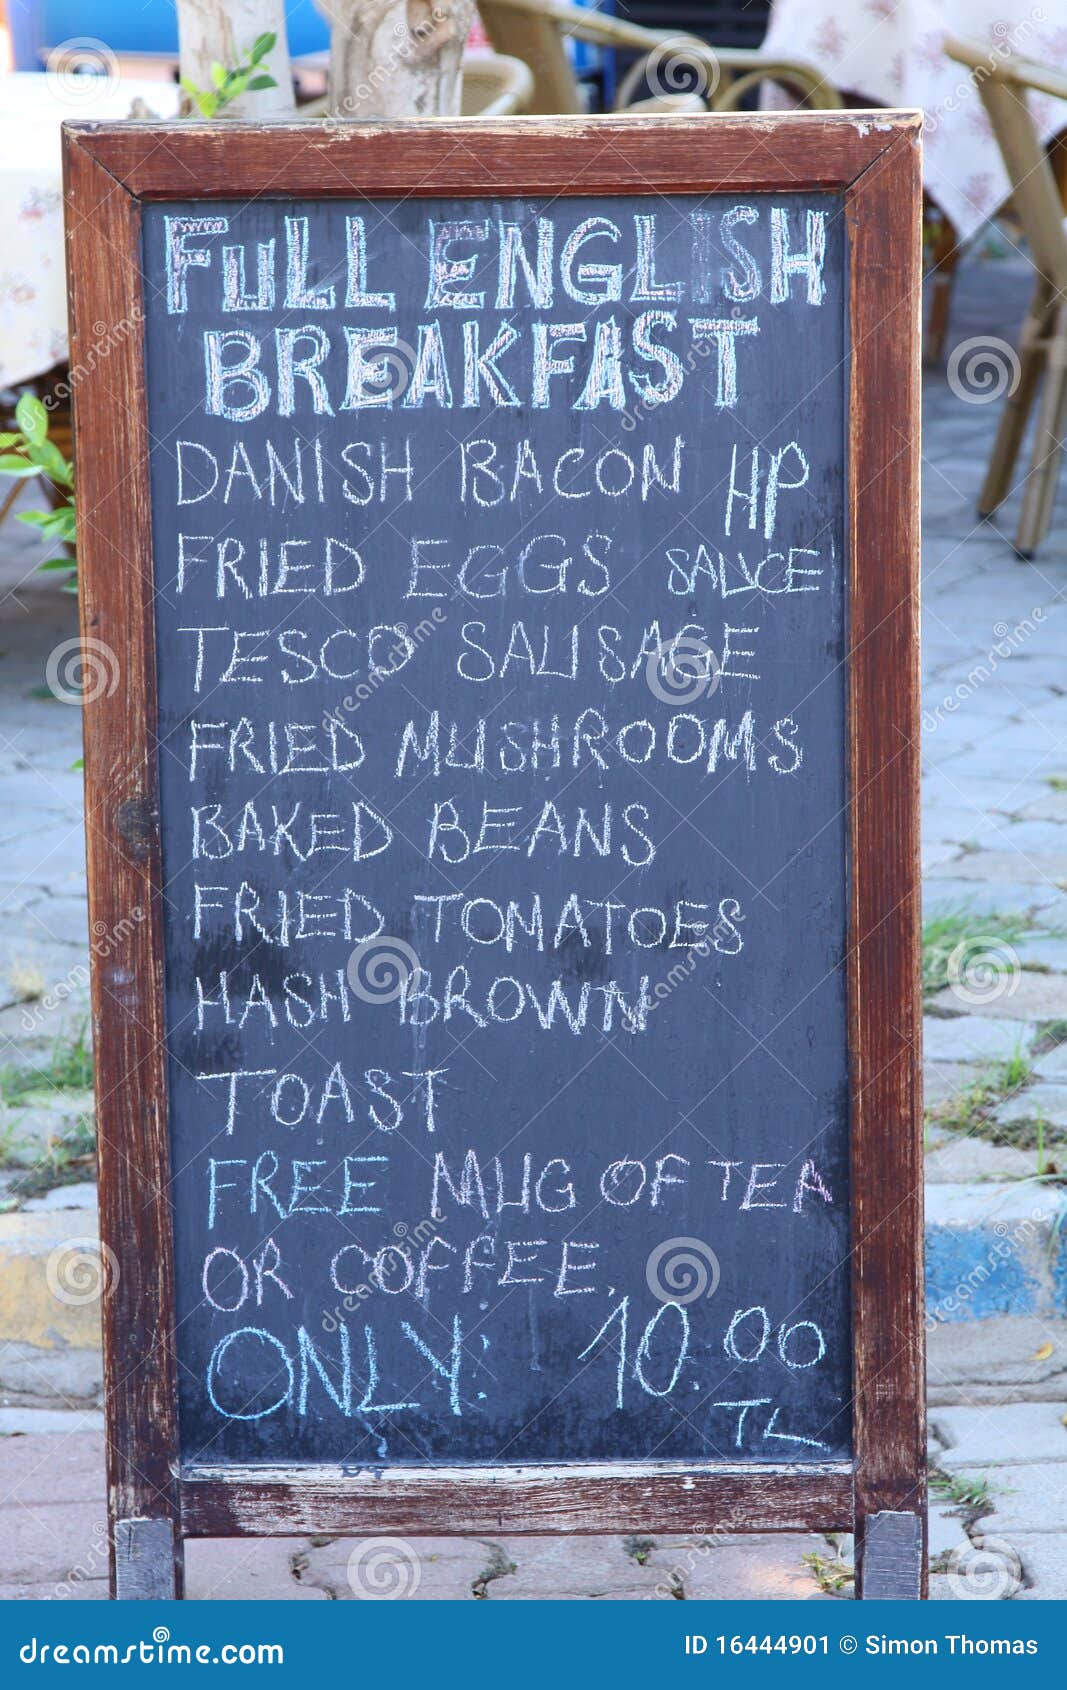 FULL ENGLISH
BREAKFAST
DANISH BACON HP
FRIED EGGS SAUCE
TESCO SAUSAGE
FRIED MUSHROOMS
BAKED BEANS
FRIED TOMATOES
HASH BROWN
TOAST
FREE MUG OF TEA
OR COFFEE.
ONLY: 10.00
TL
dreamstime.com
ID 16444901 © Simon Thomas